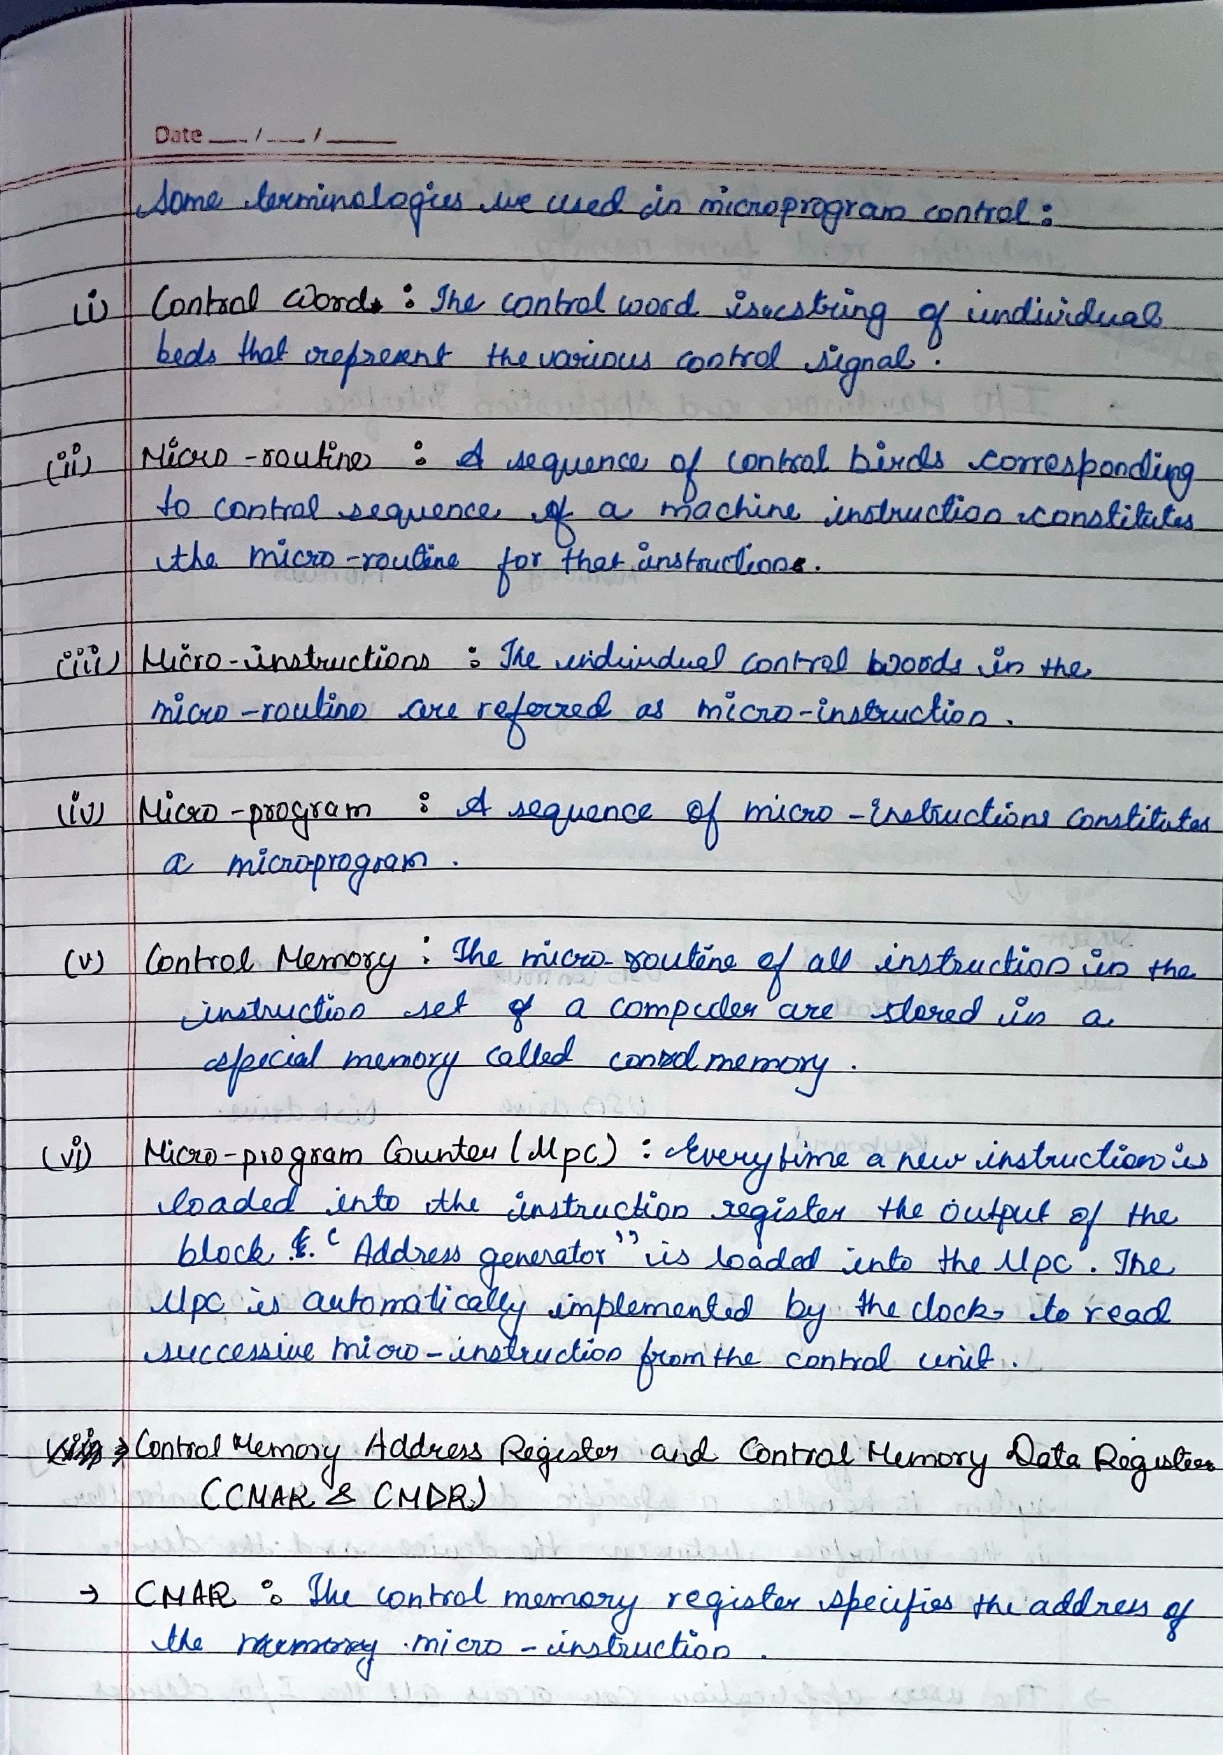 Date __ / __ / ____
Some terminologies we used in microprogram control :
(i) Control Words : The control word is a string of individual
beds that represent the various control signal.
(ii) Micro-routine : A sequence of control birds corresponding
to control sequence of a machine instruction constitutes
the micro-routine for that instructions.
(iii) Micro-instructions : The individual control woods in the
micro-routine are referred as micro-instruction.
(iv) Micro-program : A sequence of micro-instructions constitutes
a microprogram.
(v) Control Memory : The micro-routine of all instruction in the
instruction set of a computer are stored in a
special memory called control memory.
(vi) Micro-program Counter (Mpc) : Everytime a new instruction is
loaded into the instruction register the output of the
block "Address generator" is loaded into the Mpc. The
Mpc is automatically implemented by the clock, to read
successive micro-instruction from the control unit.
→ Control Memory Address Register and Control Memory Data Register
(CMAR & CMDR)
→ CMAR : The control memory register specifies the address of
the memory micro-instruction.